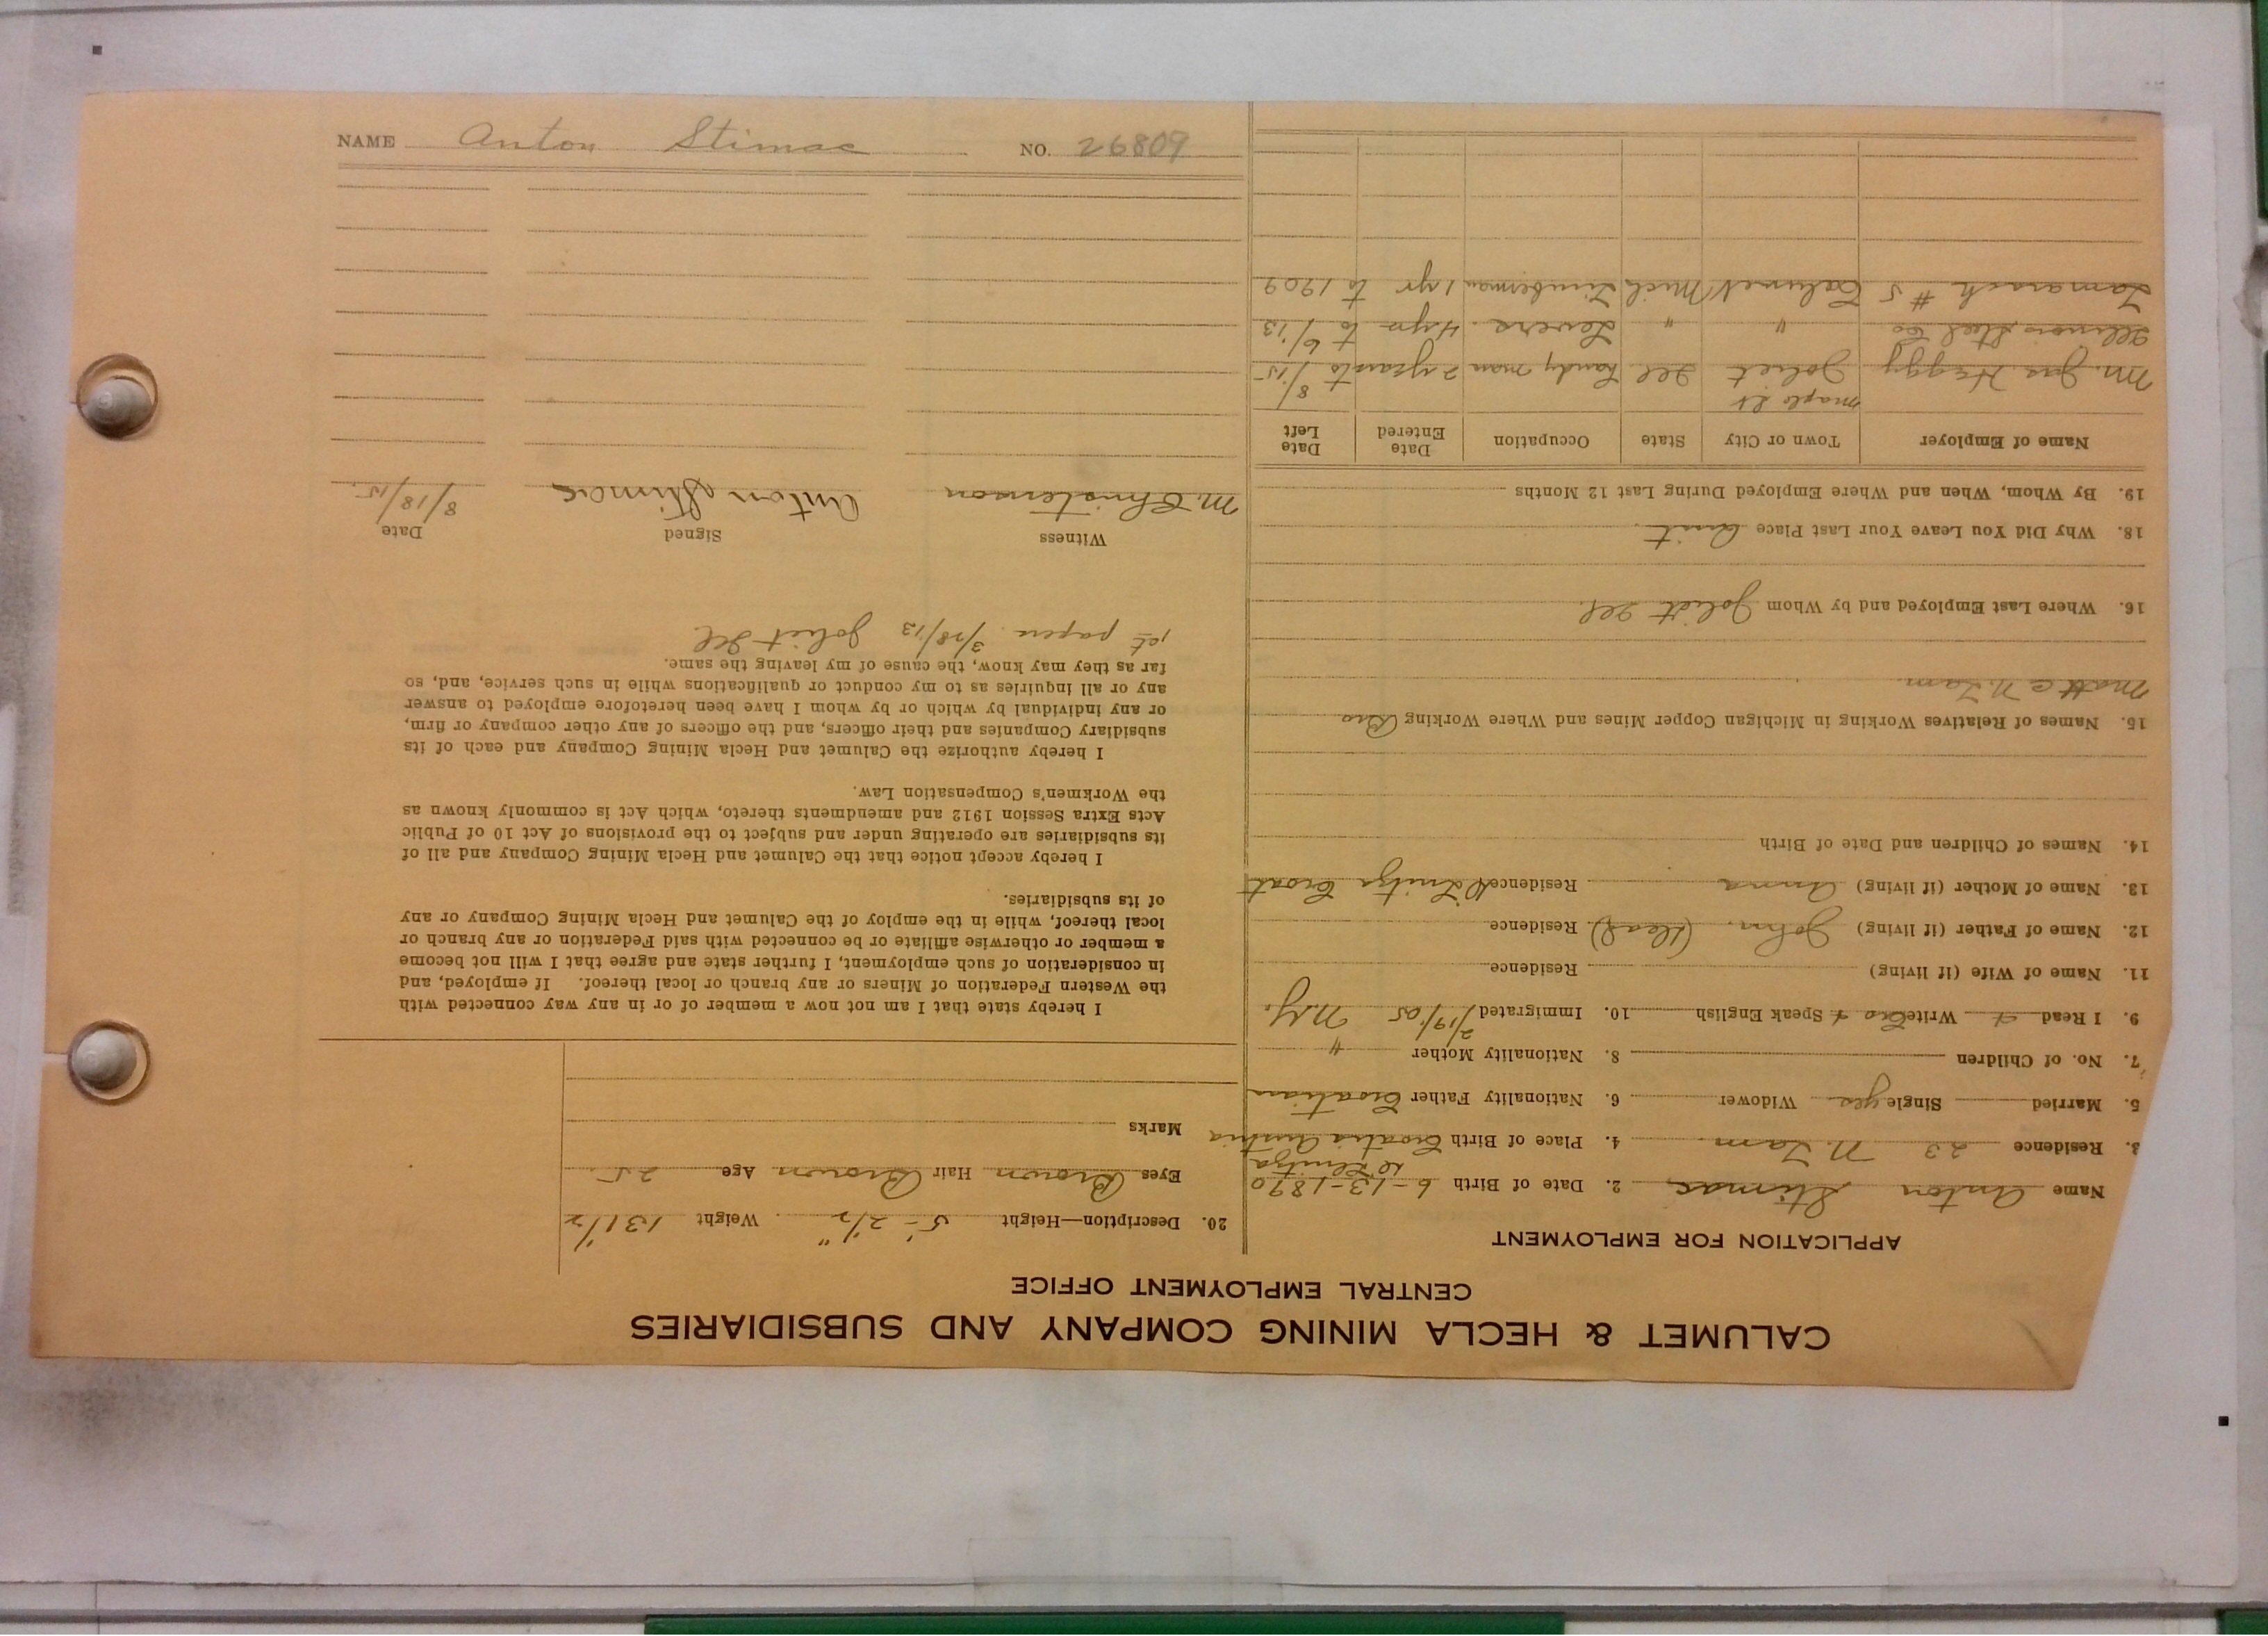 NAME Anton Stimac NO. 26809
CALUMET & HECLA MINING COMPANY AND SUBSIDIARIES
CENTRAL EMPLOYMENT OFFICE
APPLICATION FOR EMPLOYMENT
Name Anton Stimac 2. Date of Birth 6-13-1890
3. Residence 23 N. Tam. 4. Place of Birth Croatia Austria
5. Married Single yes Widower 6. Nationality Father Croatian
7. No. of Children 8. Nationality Mother "
9. I Read + Write Cro + Speak English 10. Immigrated 2/19/05 N.Y.
11. Name of Wife (if living) Residence
12. Name of Father (if living) John. (dead) Residence
13. Name of Mother (if living) Anna Residence Croat
14. Names of Children and Date of Birth
15. Names of Relatives Working in Michigan Copper Mines and Where Working Bro
Matt C N. Tam.
16. Where Last Employed and by Whom Joliet Ill.
18. Why Did You Leave Your Last Place Quit.
19. By Whom, When and Where Employed During Last 12 Months
Name of Employer Town or City State Occupation Date Entered Date Left
Maple St
Mr. Jas Heggy Joliet Ill handy man 2 years to 8/15
Illinois Steel Co " " Levers. 4 yrs to 6/13
Tamarack #5 Calumet Mich Timberman 1 yr to 1909
20. Description—Height 5'-2 1/2" Weight 131 1/2
Eyes Brown Hair Brown Age 25.
Marks
I hereby state that I am not now a member of or in any way connected with
the Western Federation of Miners or any branch or local thereof. If employed, and
in consideration of such employment, I further state and agree that I will not become
a member or otherwise affiliate or be connected with said Federation or any branch or
local thereof, while in the employ of the Calumet and Hecla Mining Company or any
of its subsidiaries.
I hereby accept notice that the Calumet and Hecla Mining Company and all of
its subsidiaries are operating under and subject to the provisions of Act 10 of Public
Acts Extra Session 1912 and amendments thereto, which Act is commonly known as
the Workmen's Compensation Law.
I hereby authorize the Calumet and Hecla Mining Company and each of its
subsidiary Companies and their officers, and the officers of any other company or firm,
or any individual by which or by whom I have been heretofore employed to answer
any or all inquiries as to my conduct or qualifications while in such service, and, so
far as they may know, the cause of my leaving the same.
1st papers 3/28/13 Joliet Ill
Witness Signed Date
M. Christenson Anton Stimac 8/18/15.